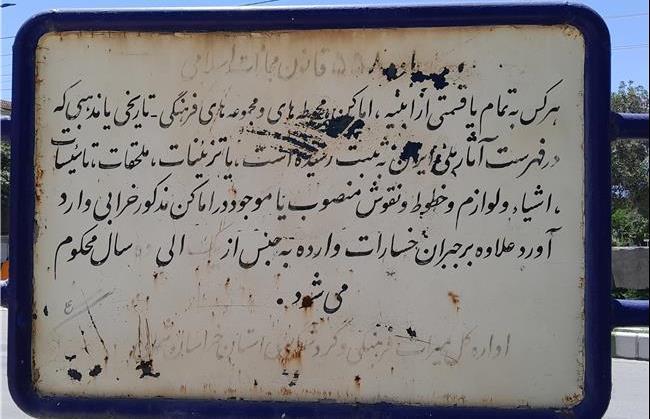 ۵۵۸ قانون مجازات اسلامی
هر کس به تمام یا قسمتی از ابنیه ، اماکن ، محیط های و مجموعه های فرهنگی - تاریخی یا مذهبی که
در فهرست آثار ملی ایران به ثبت رسیده است ، یا تزئینات ، ملحقات ، تاسیسات
، اشیاء و لوازم و خطوط و نقوش منصوب یا موجود در اماکن مذکور خرابی وارد
آورد علاوه بر جبران خسارات وارده به حبس از الی سال محکوم
می شود .
اداره کل میراث فرهنگی و گردشگری استان خراسان